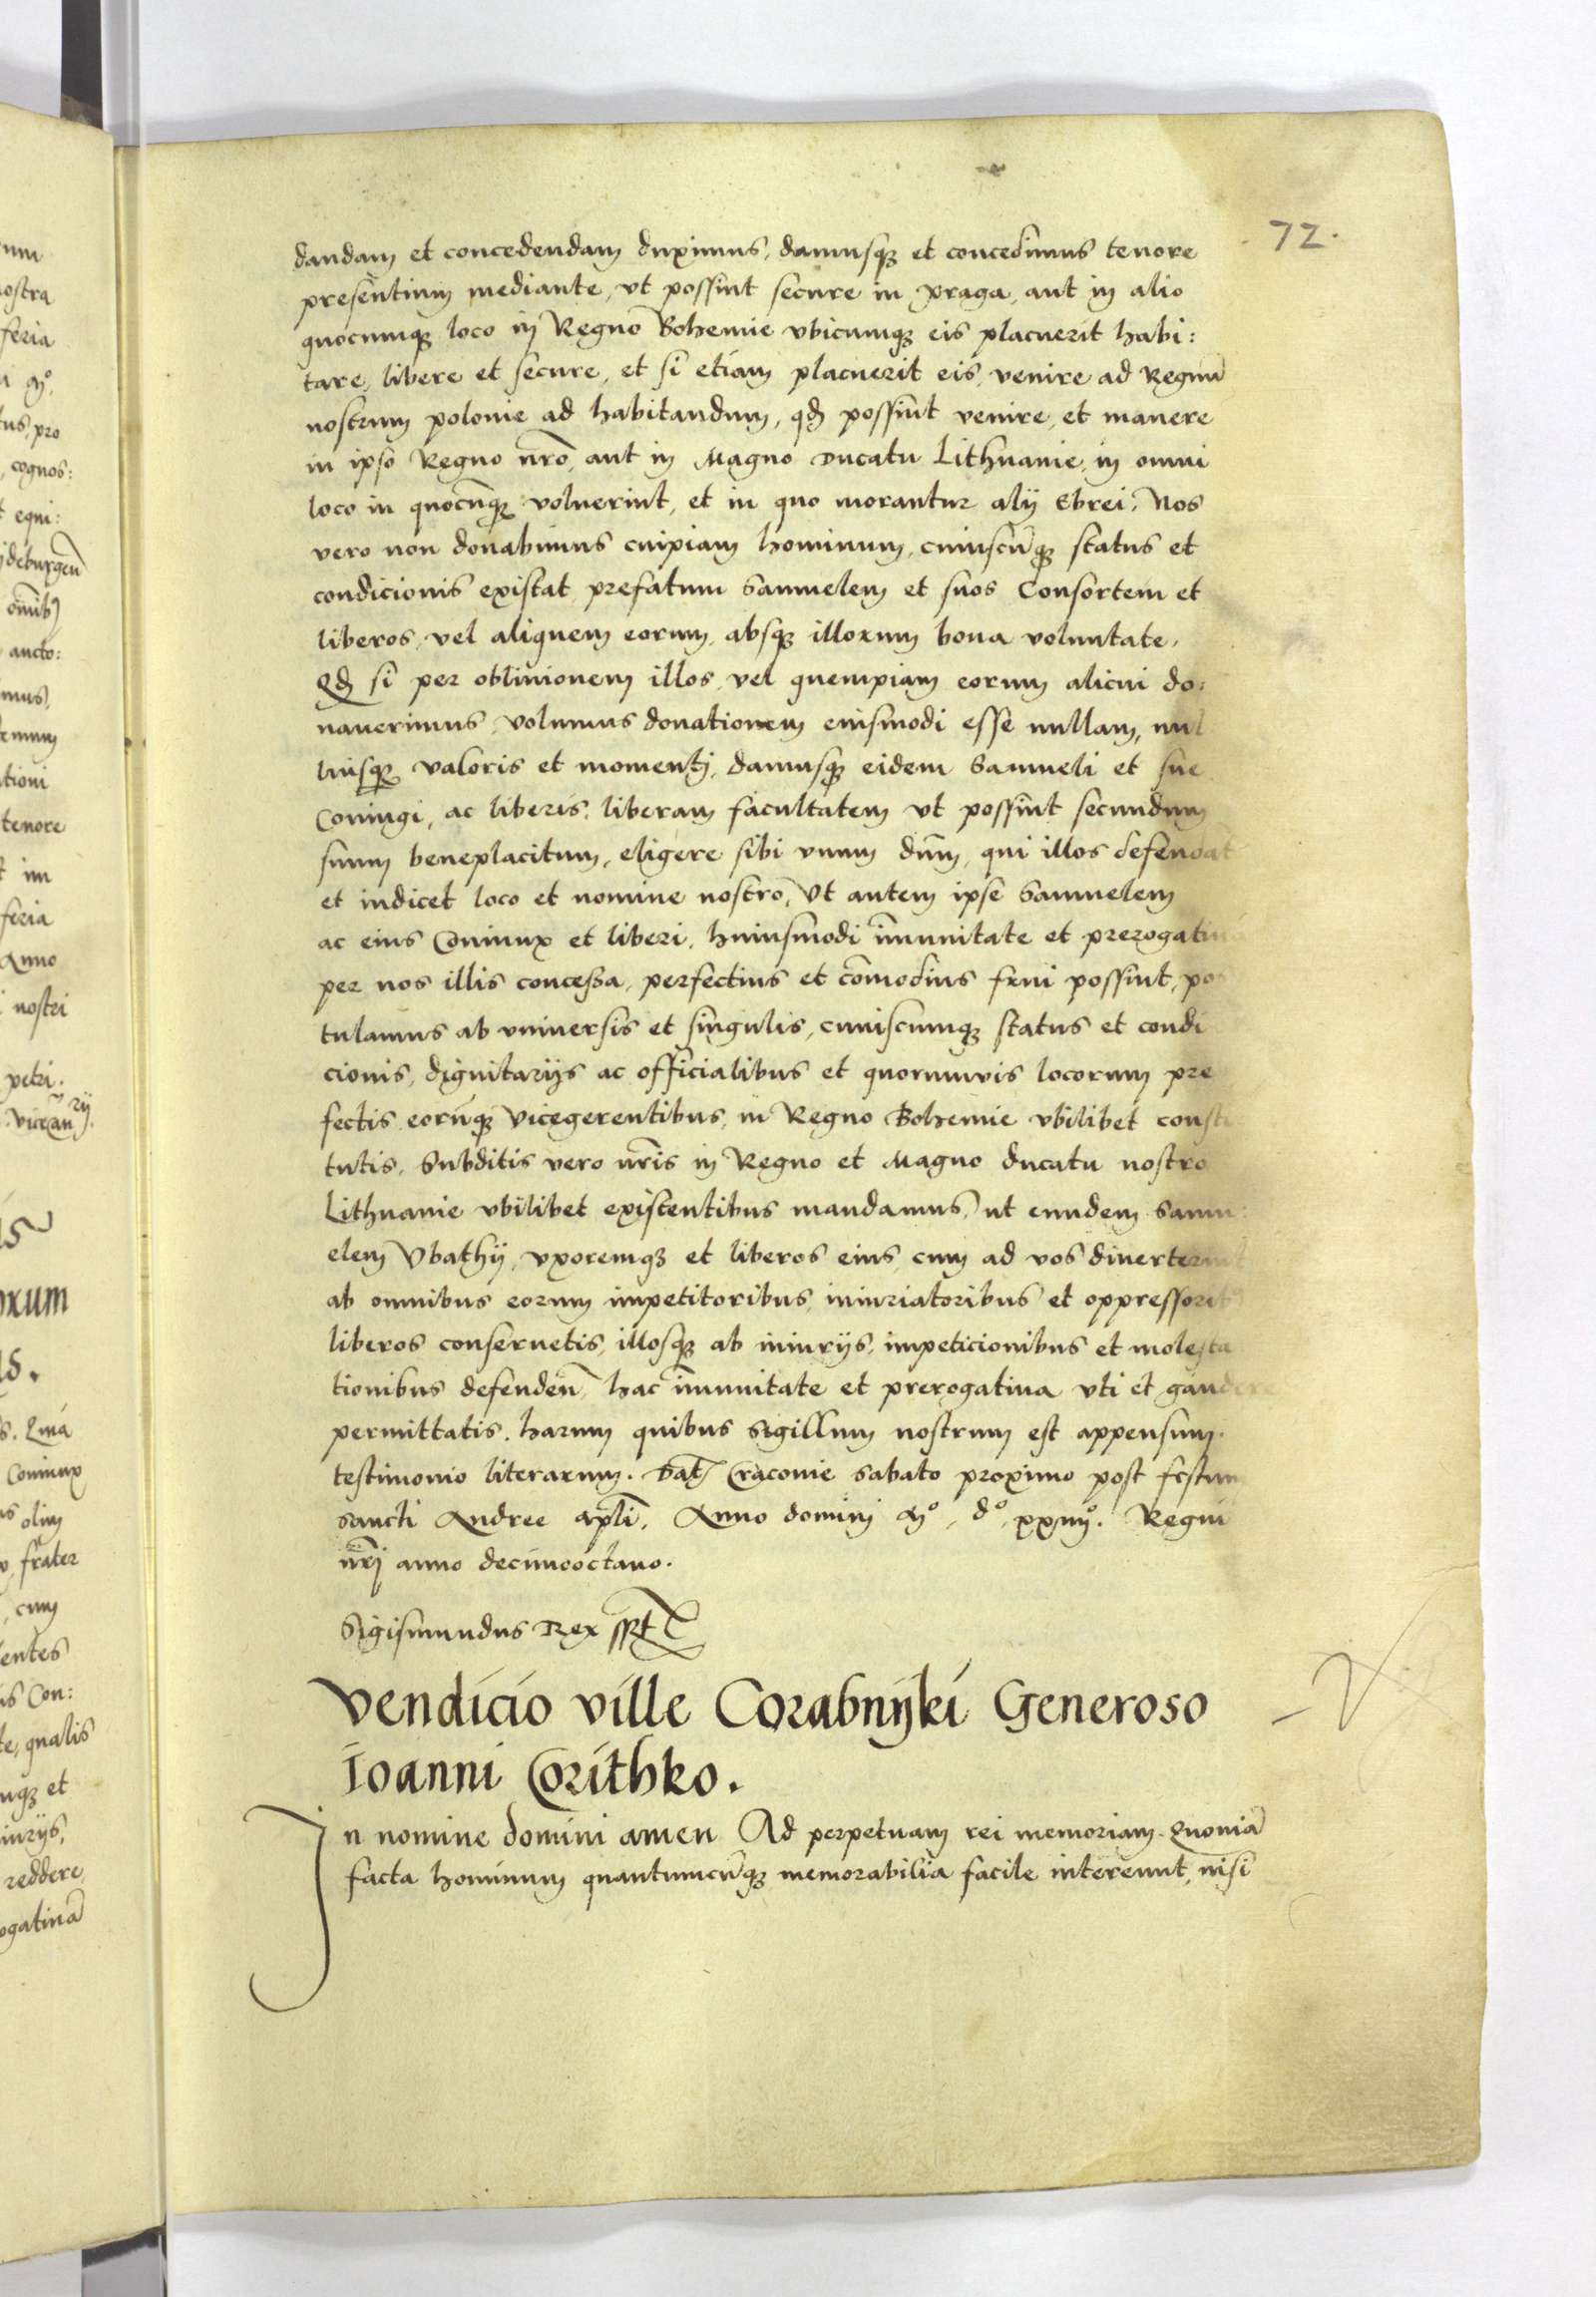 72.
dandam et concedendam duximus, damusq₃ et concedimus tenore
presentium mediante, vt possint secure in praga, aut in alio
quocumq₃ loco in Regno Bohemie vbicumq₃ eis placuerit habi:
tare, libere et secure, et si etiam placuerit eis, venire ad Regnū
nostrum polonie ad habitandum, qđ possint venire, et manere
in ipso Regno nr̄o, aut in Magno Ducatu Lithuanie, in omni
loco in quocūq₃ voluerint, et in quo morantur alij Ebrei, Nos
vero non donabimus cuipiam hominum, cuiuscūq₃ status et
condicionis existat prefatum Samuelem et suos Consortem et
liberos, vel aliquem eorum, absq₃ illorum bona voluntate,
Qđ si per obliuionem illos, vel quempiam eorum alicui do:
nauerimus, volumus donationem eiusmodi esse nullam, nul
liusq₃ valoris et momenti, damusq₃ eidem Samueli et sue
Coniugi, ac liberis, liberam facultatem vt possint secundum
suum beneplacitum, eligere sibi vnum dn̄m, qui illos defendat
et iudicet loco et nomine nostro, Vt autem ipse Samuelem
ac eius Coniunx et liberi, huiusmodi īmunitate et prerogatiu
per nos illis concessa, perfectius et cōmodius frui possint, pos
tulamus ab vniuersis et singulis, cuiuscumq₃ status et condi
cionis, dignitarijs ac officialibus et quorumvis locorum pre
fectis eorūq₃ vicegerentibus, in Regno Bohemie vbilibet consti
tutis, Subditis vero nr̄is in Regno et Magno ducatu nostro
Lithuanie vbilibet existentibus mandamus, ut eundem Samu:
elem Vbathij, vxoremq₃ et liberos eius, cum ad vos diuerterint
ab omnibus eorum impetitoribus, iniuriatoribus et oppressorib
liberos conseruetis, illosq₃ ab iniurijs, impeticionibus et molesta
tionibus defenden̄, hac īmunitate et prerogatiua vti et gaudere
permittatis, harum quibus Sigillum nostrum est appensum
testimonio literarum. Dat̄ Cracouie sabato proximo post festum
sancti Andree apl̄i, Anno domini Mº, dº, xxiiijº. Regni
nr̄i anno decimooctauo.
Sigismundus Rex s̄s̄t
Vendicio ville Corabnijki Generoso
Ioanni Corithko.
In nomine domini amen Ad perpetuam rei memoriam. Quoniā
facta hominum quantumcūq₃ memorabilia facile intereunt, nisi